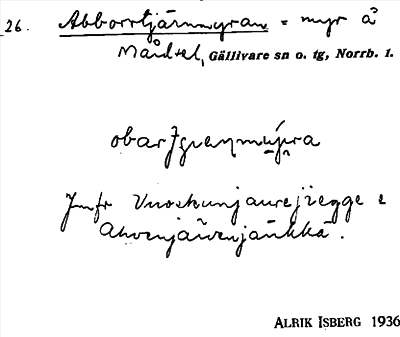 26. Abborrtjärnmyran = myr å
Måttsel, Gällivare sn o. tg, Norrb. l.
Jmfr Vuoskunjaurejiegge &
Ahvenjärvenjänkkä.
ALRIK ISBERG 1936